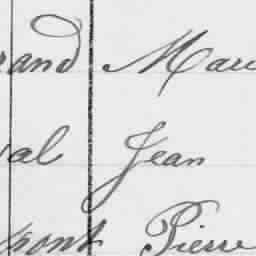 rand Mau
al Jean
pont Pierre